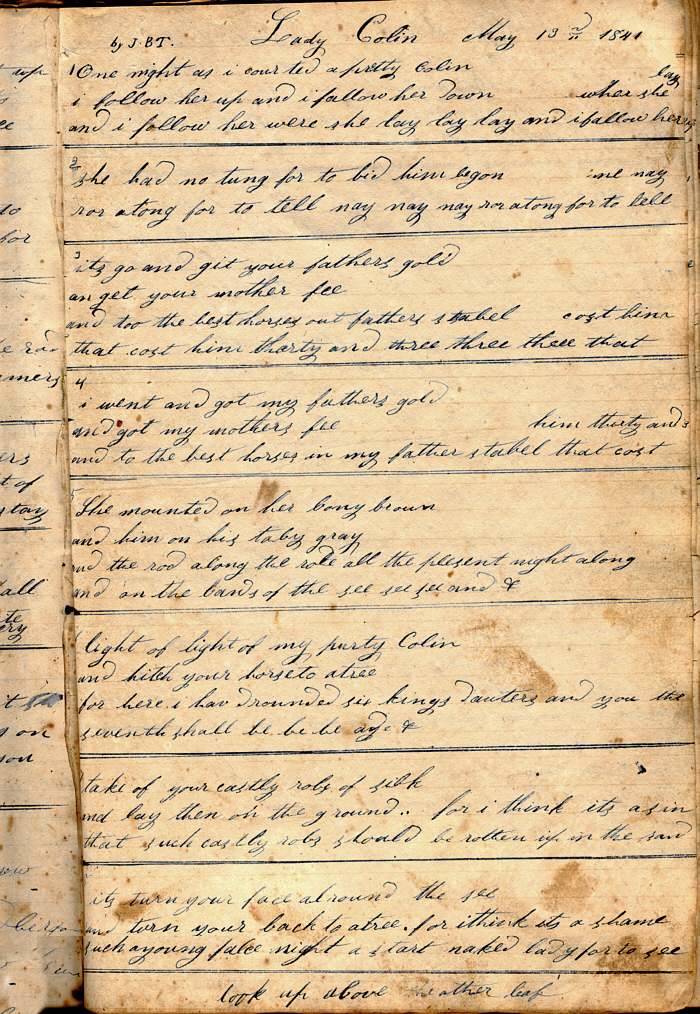 by J. B T. Lady Colin May 13 1841
1 One night as i courted a pretty Colin
lay
i follow her up and i fallow her down wher she
and i follow her were she lay lay lay and i fallow her
2 she had no tung for to bid him begon me nay
ror atong for to tell nay nay nay ror atong for to tell
3 its go and git your fathers gold
an get your mother fee
and too the best horses out fathers stabel cost him
that cost him tharty and three three theee that
4
i went and got my fathers gold
and got my mothers fee him thirty and 3
and to the best horses in my father stabel that cost
5 She mounted on her bony brown
and him on his taby gray
and the rod along the rode all the plesent night along
and on the bands of the see see see and &
light of light of my purty Colin
and hitch your horse to atree
for here i hav drounded six kings dauters and you the
seventh shall be be be aye &
take of your castly robs of silk
and lay then on the ground.. for i think its a sin
that such castly robs should be rotten up in the sand
its turn your face alround the see
and turn your back to atree. for ithink its a shame
such ayoung falce night a start naked lady for to see
look up above the other leaf
up
to
for
rod
ers
t of
stay
all
ery
on
son